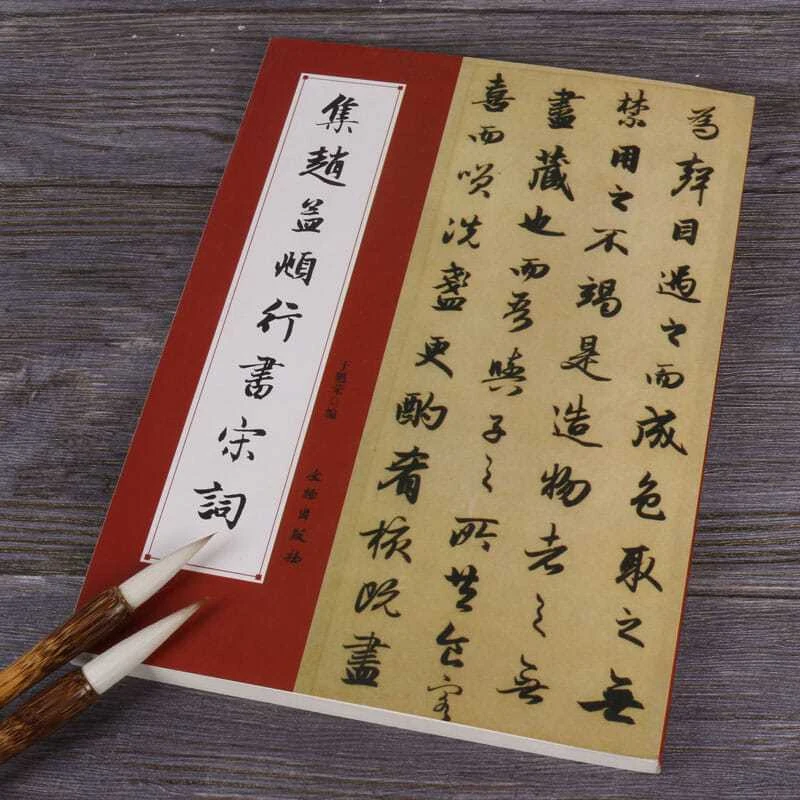 集趙孟頫行書宋詞
于魁荣 编
文物出版社
為聲目遇之而成色取之無
禁用之不竭是造物者之無
盡藏也而吾與子之所共食客
喜而笑洗盞更酌肴核既盡